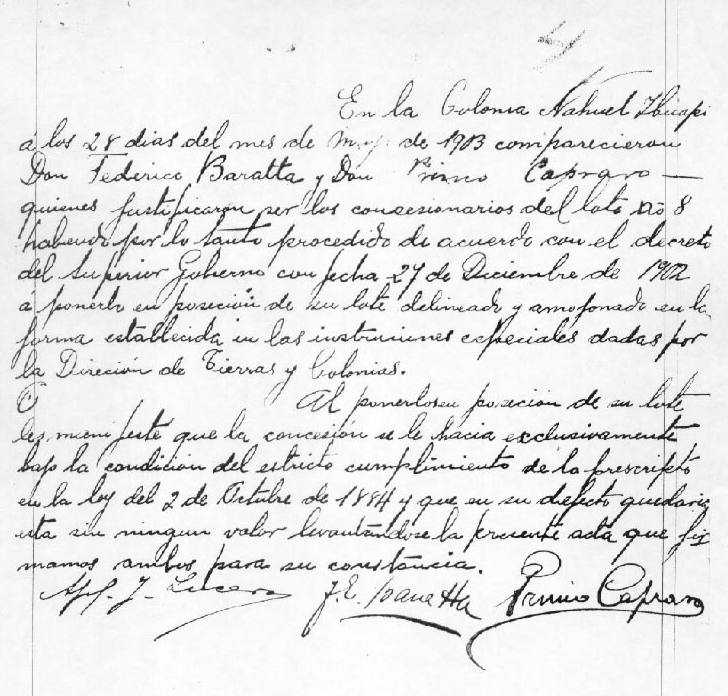 En la Colonia Nahuel Huapi
á los 28 dias del mes de Mayo de 1903 comparecieron
Don Federico Baratta y Don Primo Capraro —
quienes justificaron ser los concesionarios del lote No 8
habiendo por lo tanto procedido de acuerdo con el decreto
del Superior Gobierno con fecha 27 de Diciembre de 1902
a ponerlo en posición de su lote delineado y amojonado en la
forma establecida en las instruciones especiales dadas por
la Direción de Tierras y Colonias.
Al ponerlos en posición de su lote
les manifesté que la concesión se le hacia exclusivamente
bajo la condición del estricto cumplimiento de lo prescripto
en la ley del 2 de Octubre de 1884 y que en su defecto quedaria
esta sin ningun valor levantándose la presente acta que fir
mamos ambos para su constáncia.
Primo Capraro